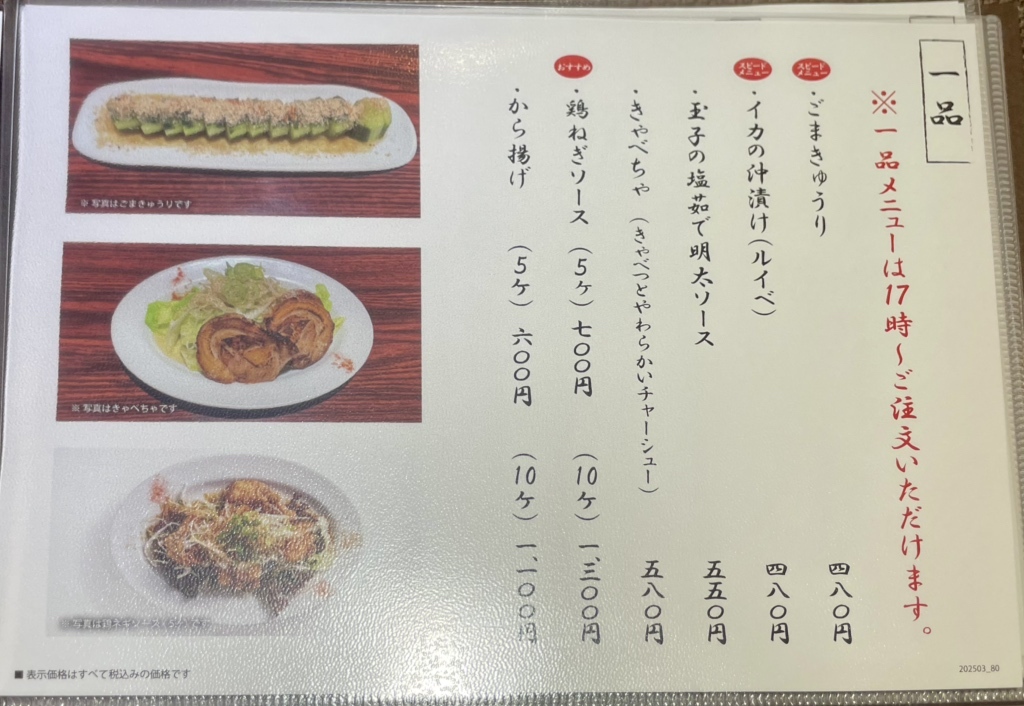 一品
※一品メニューは17時～ご注文いただけます。
スピードメニュー
・ごまきゅうり 四八〇円
スピードメニュー
・イカの沖漬け(ルイベ) 四八〇円
・玉子の塩茹で明太ソース 五五〇円
・きゃべちゃ (きゃべつとやわらかいチャーシュー) 五八〇円
おすすめ
・鶏ねぎソース (5ヶ) 七〇〇円 (10ヶ) 一、三〇〇円
・から揚げ (5ヶ) 六〇〇円 (10ヶ) 一、一〇〇円
※ 写真はごまきゅうりです
※ 写真はきゃべちゃです
※ 写真は鶏ネギソース
■ 表示価格はすべて税込みの価格です
202503_80